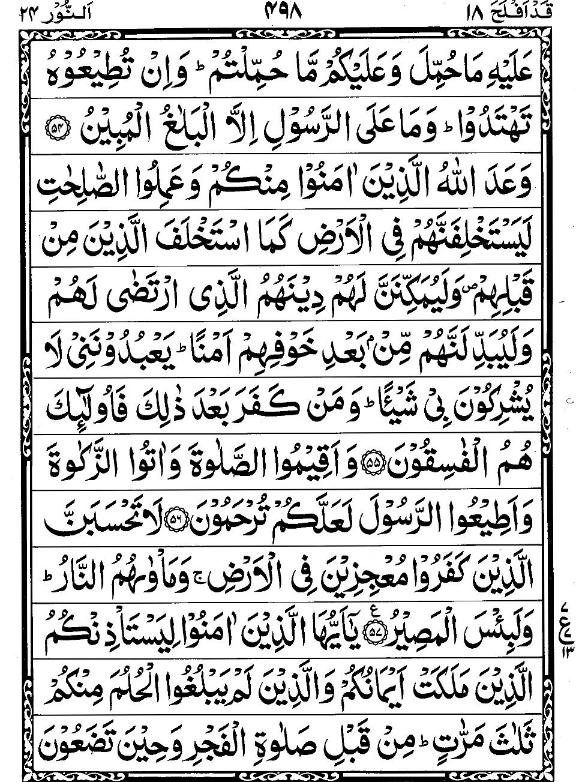 قَدۡ اَفۡلَحَ ١٨
٤٩٨
اَلنُّوۡر ٢٤
عَلَيۡهِ مَا حُمِّلَ وَعَلَيۡكُمۡ مَّا حُمِّلۡتُمۡ‌ؕ وَاِنۡ تُطِيۡعُوۡهُ
تَهۡتَدُوۡا‌ؕ وَمَا عَلَى الرَّسُوۡلِ اِلَّا الۡبَلٰغُ الۡمُبِيۡنُ ﴿۵۴﴾
وَعَدَ اللّٰهُ الَّذِيۡنَ اٰمَنُوۡا مِنۡكُمۡ وَعَمِلُوا الصّٰلِحٰتِ
لَيَسۡتَخۡلِفَنَّهُمۡ فِى الۡاَرۡضِ كَمَا اسۡتَخۡلَفَ الَّذِيۡنَ مِنۡ
قَبۡلِهِمۡ ص وَلَيُمَكِّنَنَّ لَهُمۡ دِيۡنَهُمُ الَّذِى ارۡتَضٰى لَهُمۡ
وَلَيُبَدِّلَنَّهُمۡ مِّنۡۢ بَعۡدِ خَوۡفِهِمۡ اَمۡنًا‌ؕ يَعۡبُدُوۡنَنِىۡ لَا
يُشۡرِكُوۡنَ بِىۡ شَيۡـًٔا‌ؕ وَمَنۡ كَفَرَ بَعۡدَ ذٰلِكَ فَاُولٰٓٮِٕكَ
هُمُ الۡفٰسِقُوۡنَ ﴿۵۵﴾ وَاَقِيۡمُوا الصَّلٰوةَ وَاٰتُوا الزَّكٰوةَ
وَاَطِيۡعُوا الرَّسُوۡلَ لَعَلَّكُمۡ تُرۡحَمُوۡنَ ﴿۵۶﴾ لَا تَحۡسَبَنَّ
الَّذِيۡنَ كَفَرُوۡا مُعۡجِزِيۡنَ فِى الۡاَرۡضِ‌ۚ وَمَاۡوٰٮهُمُ النَّارُ‌ؕ
وَلَبِئۡسَ الۡمَصِيۡرُ ﴿۵۷﴾ ع يٰۤاَيُّهَا الَّذِيۡنَ اٰمَنُوۡا لِيَسۡتَاۡذِنۡكُمُ
الَّذِيۡنَ مَلَكَتۡ اَيۡمَانُكُمۡ وَالَّذِيۡنَ لَمۡ يَبۡلُغُوا الۡحُلُمَ مِنۡكُمۡ
ثَلٰثَ مَرّٰتٍ‌ؕ مِنۡ قَبۡلِ صَلٰوةِ الۡفَجۡرِ وَحِيۡنَ تَضَعُوۡنَ
٧
ع ٧
١٣